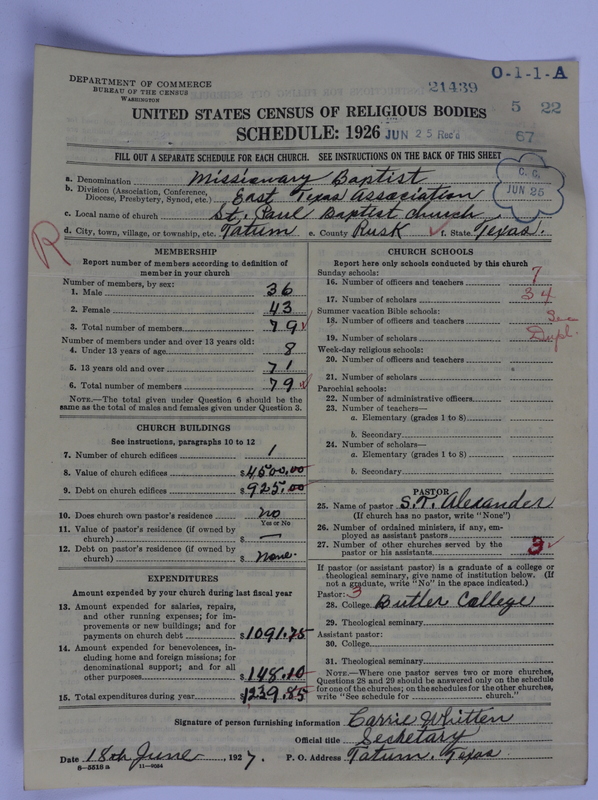 DEPARTMENT OF COMMERCE
BUREAU OF THE CENSUS
WASHINGTON
21439
O-1-1-A
5 22
67
UNITED STATES CENSUS OF RELIGIOUS BODIES
SCHEDULE: 1926
JUN 25 Rec'd
FILL OUT A SEPARATE SCHEDULE FOR EACH CHURCH. SEE INSTRUCTIONS ON THE BACK OF THIS SHEET
C. G.
JUN 25
a. Denomination Missionary Baptist
b. Division (Association, Conference, Diocese, Presbytery, Synod, etc.) East Texas Association
c. Local name of church St. Paul Baptist Church
d. City, town, village, or township, etc. Tatum e. County Rusk f. State Texas.
R
MEMBERSHIP
Report number of members according to definition of
member in your church
Number of members, by sex:
1. Male 36
2. Female 43
3. Total number of members 79
Number of members under and over 13 years old:
4. Under 13 years of age 8
5. 13 years old and over 71
6. Total number of members 79
NOTE.—The total given under Question 6 should be the
same as the total of males and females given under Question 3.
CHURCH BUILDINGS
See instructions, paragraphs 10 to 12
7. Number of church edifices 1
8. Value of church edifices $4500.00
9. Debt on church edifices $925.00
10. Does church own pastor's residence? no
Yes or No
11. Value of pastor's residence (if owned by
church) $ —
12. Debt on pastor's residence (if owned by
church) $ none.
EXPENDITURES
Amount expended by your church during last fiscal year
13. Amount expended for salaries, repairs,
and other running expenses; for im-
provements or new buildings; and for
payments on church debt $1091.75
14. Amount expended for benevolences, in-
cluding home and foreign missions; for
denominational support; and for all
other purposes $148.10
15. Total expenditures during year $1239.85
CHURCH SCHOOLS
Report here only schools conducted by this church
Sunday schools:
16. Number of officers and teachers 7
17. Number of scholars 34
Summer vacation Bible schools:
See
18. Number of officers and teachers
Dupl.
19. Number of scholars
Week-day religious schools:
20. Number of officers and teachers
21. Number of scholars
Parochial schools:
22. Number of administrative officers
23. Number of teachers—
a. Elementary (grades 1 to 8)
b. Secondary
24. Number of scholars—
a. Elementary (grades 1 to 8)
b. Secondary
PASTOR
25. Name of pastor S. T. Alexander
(If church has no pastor, write "None")
26. Number of ordained ministers, if any, em-
ployed as assistant pastors
27. Number of other churches served by the
pastor or his assistants 3
If pastor (or assistant pastor) is a graduate of a college or
theological seminary, give name of institution below. (If
not a graduate, write "No" in the space indicated.)
Pastor: 3
28. College Butler College
29. Theological seminary
Assistant pastor:
30. College
31. Theological seminary
NOTE.—Where one pastor serves two or more churches,
Questions 28 and 29 should be answered only on the schedule
for one of the churches; on the schedules for the other churches,
write "See schedule for church."
Signature of person furnishing information Carrie Whitten
Official title Secketary
Date 18th June 1927. P. O. Address Tatum, Texas
8-5518a 11-9034